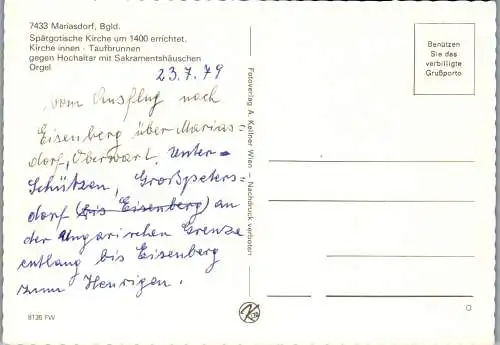 7433 Mariasdorf, Bgld.
Spärgotische Kirche um 1400 errichtet.
Kirche innen · Taufbrunnen
gegen Hochaltar mit Sakramentshäuschen
Orgel
23.7.79
vom Ausflug nach
Eisenberg über Marias=
dorf, Oberwart. Unter-
Schützen, Großpeters=
dorf (bis Eisenberg) an
der Ungarischen Grenze
entlang bis Eisenberg
zum Heurigen.
8126 FW
Fotoverlag A. Kellner Wien — Nachdruck verboten
Benützen
Sie das
verbilligte
Grußporto